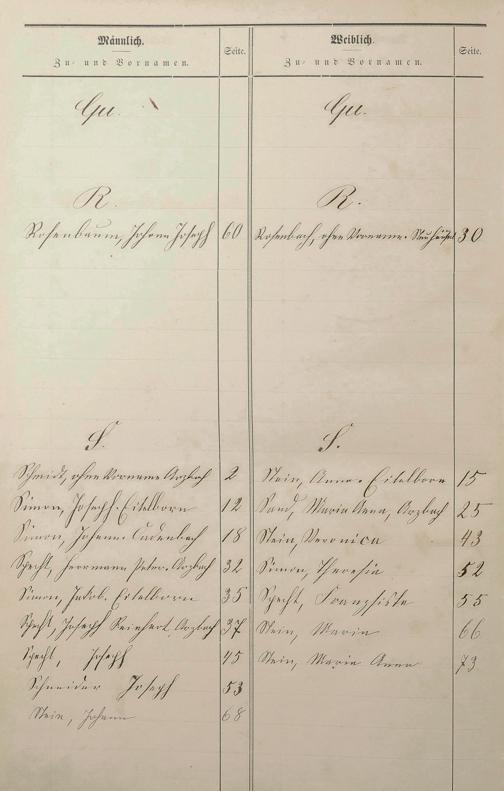 Männlich.
Zu- und Vornamen.
Seite.
Qu.
R.
Rosenbaum, Johann Joseph 60
S.
Schmidt, ohne Vorname Arzbach 2
Simon, Joseph. Eitelborn 12
Simon, Johann. Cadenbach 18
Specht, Herrmann Peter. Arzbach 32
Simon, Jakob. Eitelborn 35
Specht, Joseph Reinhart. Arzbach 37
Specht, Joseph 45
Schneider Joseph 53
Stein, Johann 68
Weiblich.
Zu- und Vornamen.
Seite.
Qu.
R.
Rosenbach, ohne Vorname. Neuhäusel 30
S.
Stein, Anna. Eitelborn 15
Sand, Maria Anna, Arzbach 25
Stein, Veronica 43
Simon, Theresia 52
Specht, Franziska 55
Stein, Maria 66
Stein, Maria Anna 73